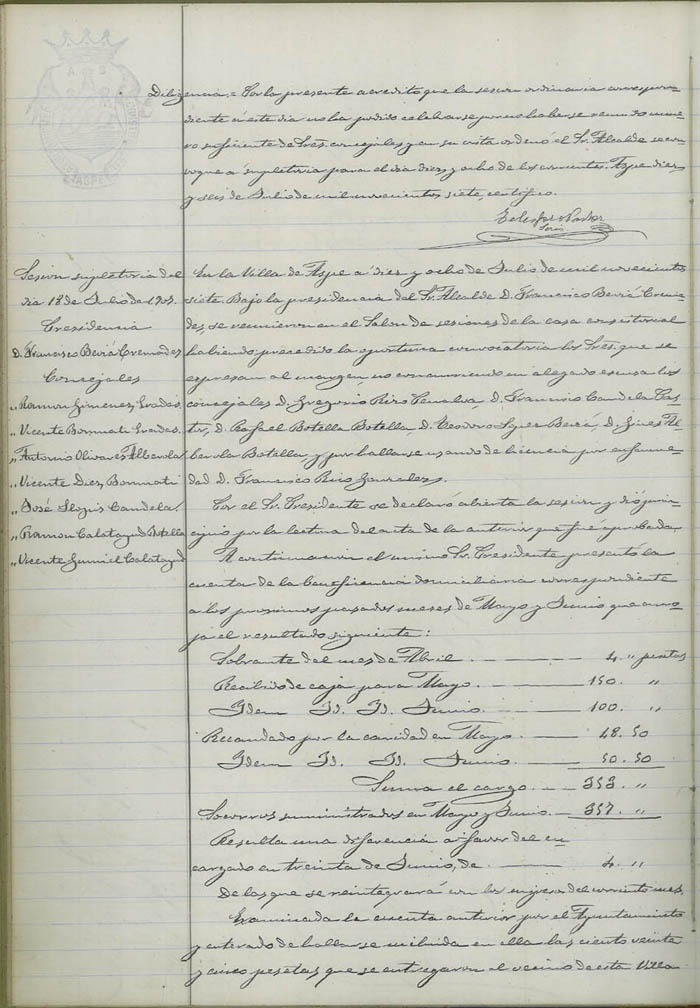 Diligencia = Por la presente acredito que la sesion ordinaria correspon-
diente a este dia no ha podido celebrarse por no haberse reunido nume-
ro suficiente de Sres. concejales y en su vista ordenó el Sr. Alcalde se con-
voque a supletoria para el dia diez y ocho de los corrientes. Aspe diez
y seis de Julio de mil novecientos siete, certifico.
Sesion supletoria del
dia 18 de Julio de 1907.
Presidencia
D. Francisco Beviá Cremades
Concejales
" Ramon Gimenez Prados
" Vicente Bonmati Prades.
" Antonio Olivares Alberola
" Vicente Diez Bonmati
" José Candela.
" Ramon Calatayud Botella
" Vicente Gumiel Calatayud
En la Villa de Aspe a diez y ocho de Julio de mil novecientos
siete. Bajo la presidencia del Sr. Alcalde D. Francisco Beviá Crema-
des, se reunieron en el Salon de sesiones de la casa consistorial
habiendo precedido la oportuna convocatoria los Sres. que se
espresan al margen, no concurriendo ni alegado escusa los
concejales D. Gregorio Rizo Penalva, D. Francisco Candela Pas-
tor, D. Rafael Botella Botella, D. Teodoro Lopez Beviá, D. Gines Al-
berola Botella, y por hallarse usando de licencia por enferme-
dad D. Francisco Rico Gonzalez.
Por el Sr. Presidente se declaró abierta la sesion y dió prin-
cipio por la lectura del acta de la anterior que fué aprobada.
A continuacion el mismo Sr. Presidente presentó la
cuenta de la beneficiencia domiciliaria correspondiente
a los proximos pasados meses de Mayo y Junio que arro-
ja el resultado siguiente:
Sobrante del mes de Abril 4 " pesetas
Recibido de caja para Mayo 150. "
Idem Id. Id. Junio 100. "
Recaudado por la caridad en Mayo 48.50
Idem Id. Id. Junio 50.50
Suma el cargo 353. "
Socorros suministrados en Mayo y Junio 357. "
Resulta una diferencia a favor del en-
cargado en treinta de Junio, de 4 "
De las que se reintegrará con los ingresos del corriente mes.
Examinada la cuenta anterior por el Ayuntamiento
y enterado de hallarse incluida en ella las ciento veinte
y cinco pesetas que se entregaron al vecino de esta Villa